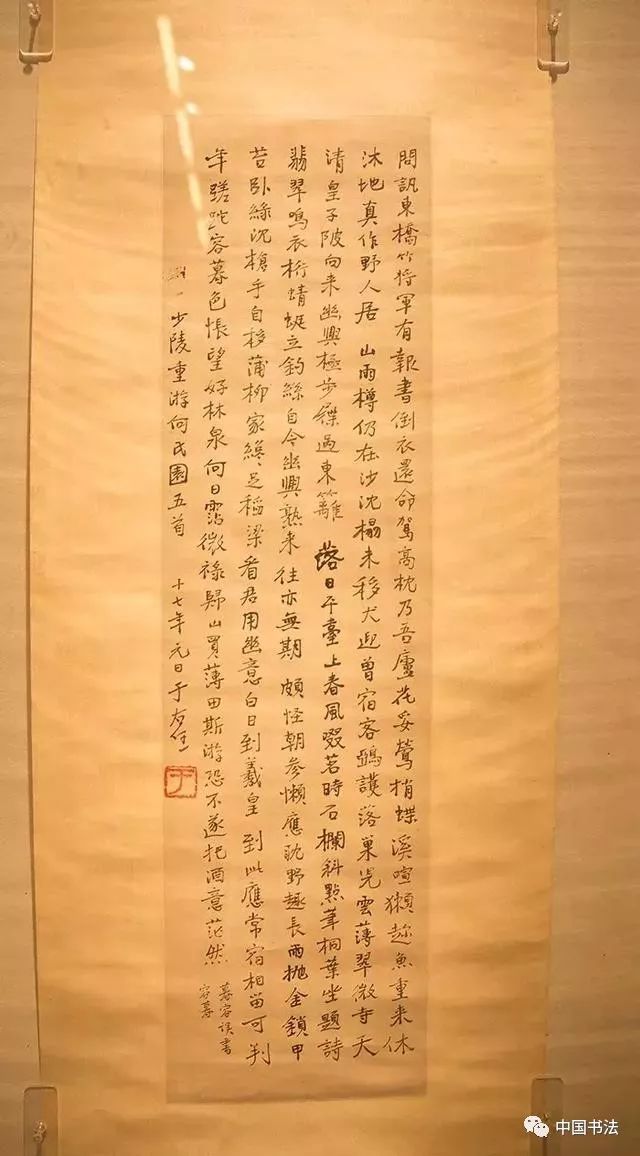 問訊東橋竹將軍有報書倒衣還命駕高枕乃吾廬花妥鶯捎蝶溪喧獺趁魚重来休
沐地真作野人居 山雨樽仍在沙沈榻未移犬迎曽宿客鴉護落巢児雲薄翠微寺天
清皇子陂向来幽興極步屧過東籬 落日平臺上春風啜茗時石欄斜點筆桐葉坐題詩
翡翠鳴衣桁蜻蜓立釣絲自今幽興熟来往亦無期 頗怪朝參懶應耽野趣長雨抛金鎖甲
苔卧綠沈槍手自移蒲柳家纔足稻梁看君用幽意白日到羲皇 到此應常宿相留可判
年蹉跎容暮色悵望好林泉何日霑微祿歸山買薄田斯游恐不遂把酒意茫然
暮容誤書
容暮
少陵重游何氏園五首 十七年元日于右任
于
中国书法